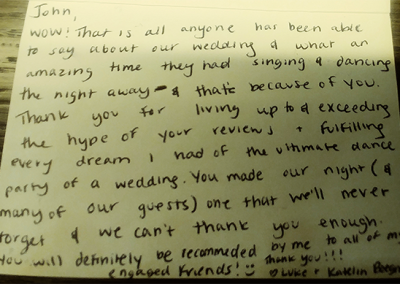 John,
WOW! That is all anyone has been able
to say about our wedding & what an
amazing time they had singing & dancing
the night away - & thats because of you.
Thank you for living up to & exceeding
the hype of your reviews + fulfilling
every dream I had of the ultimate dance
party of a wedding. You made our night (&
many of our guests) one that we'll never
forget & we can't thank you enough.
You will definitely be recommeded by me to all of my
engaged friends! thank you!!!
Luke + Katelin